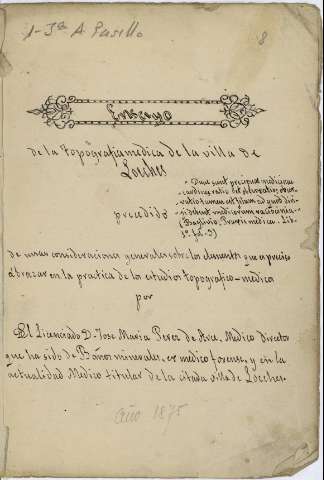 1-3ª A Pasillo
8
Ensayo
de la topografia medica de la villa de
Loeches
"Duae sunt precipuae medicinae
cardines ratio et observatio; obser
vatio tamen est filum ad quod diri
gi debent medicorum ratiocinia"
(Baglivio, Praxis medica. Lib.
1º)
precedido
de unas consideraciones generales sobre los elementos que es preciso
abrazar en la practica de los estudios topografico-medicos
por
El Licenciado D. Jose Maria Perez de Arce, Medico director
que ha sido de Baños minerales, ex medico forense, y en la
actualidad Medico titular de la citada villa de Loeches.
Año 1875